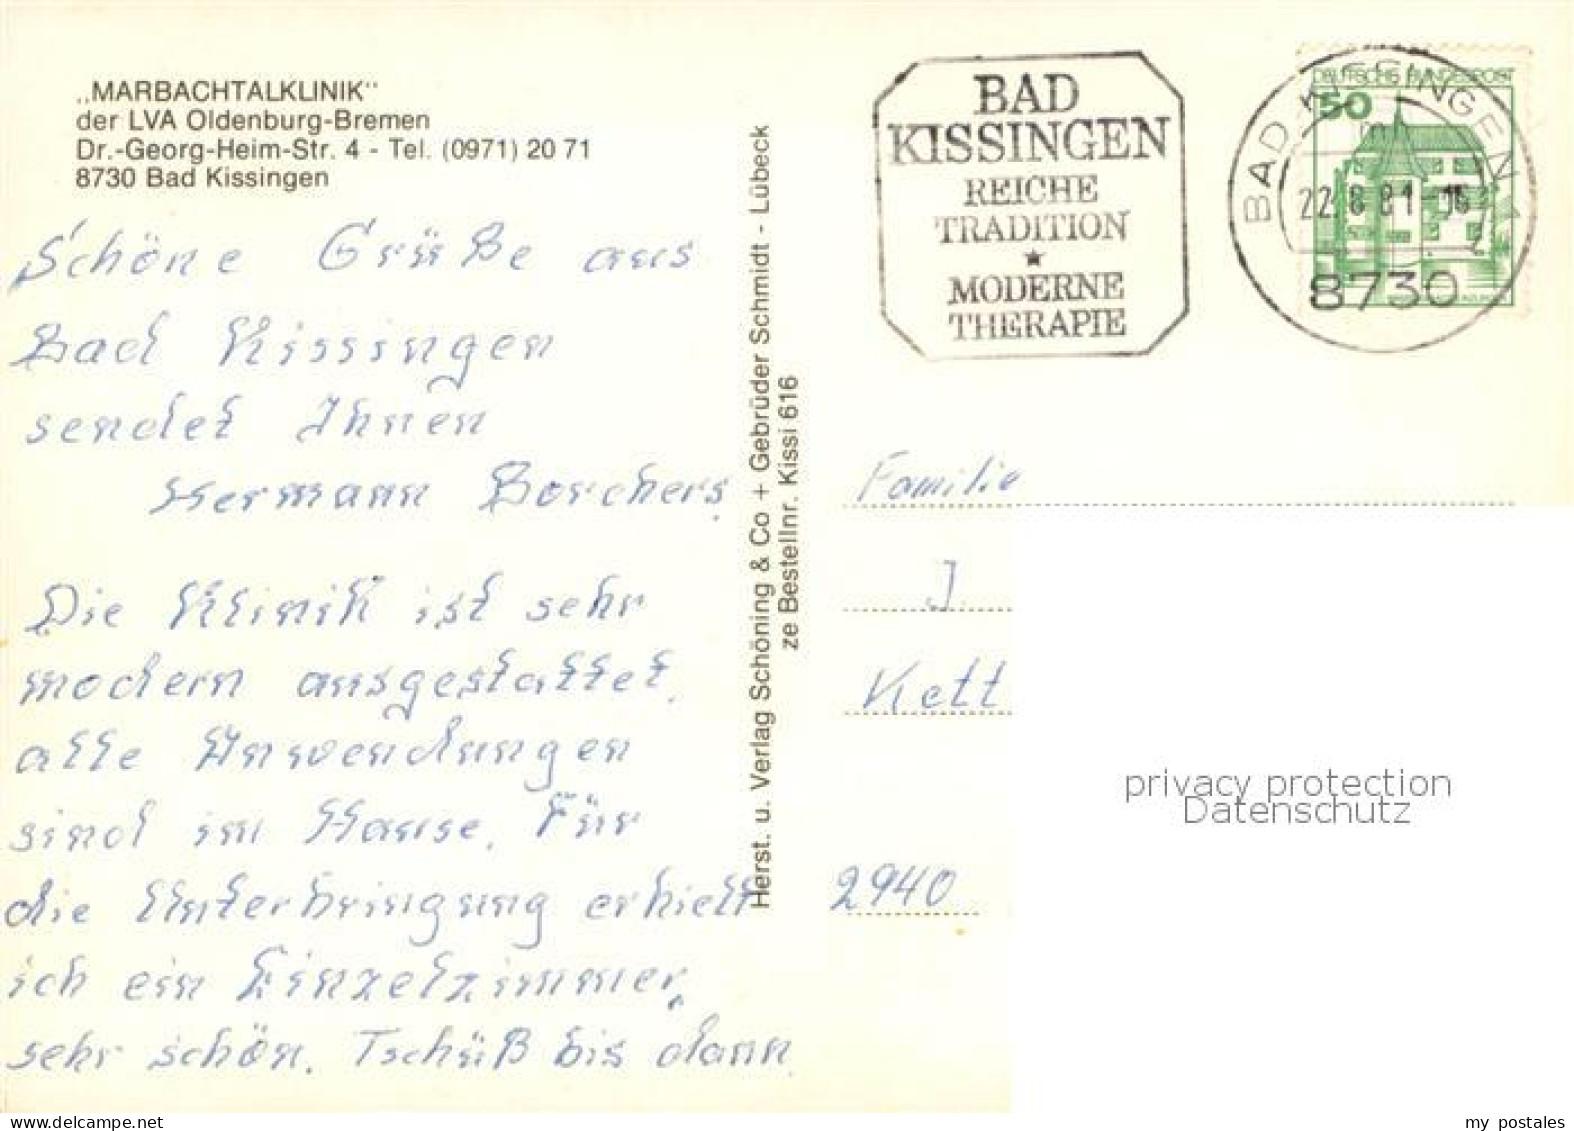 „MARBACHTALKLINIK"
der LVA Oldenburg-Bremen
Dr.-Georg-Heim-Str. 4 - Tel. (0971) 20 71
8730 Bad Kissingen
Schöne Grüße aus
Bad Kissingen
sendet Ihnen
Hermann Borchers.
Die Klinik ist sehr
modern ausgestattet.
alle Anwendungen
sind im Hause. Für
die Unterbringung erhielt
ich ein Einzelzimmer,
sehr schön. Tschüß bis dann
Herst. u. Verlag Schöning & Co + Gebrüder Schmidt - Lübeck
ze Bestellnr. Kissi 616
BAD
KISSINGEN
REICHE
TRADITION
★
MODERNE
THERAPIE
DEUTSCHE BUNDESPOST
50
BAD KISSINGEN 1
22.8.81-16
8730
Familie
J.
Kett
2940
privacy protection
Datenschutz
my postales